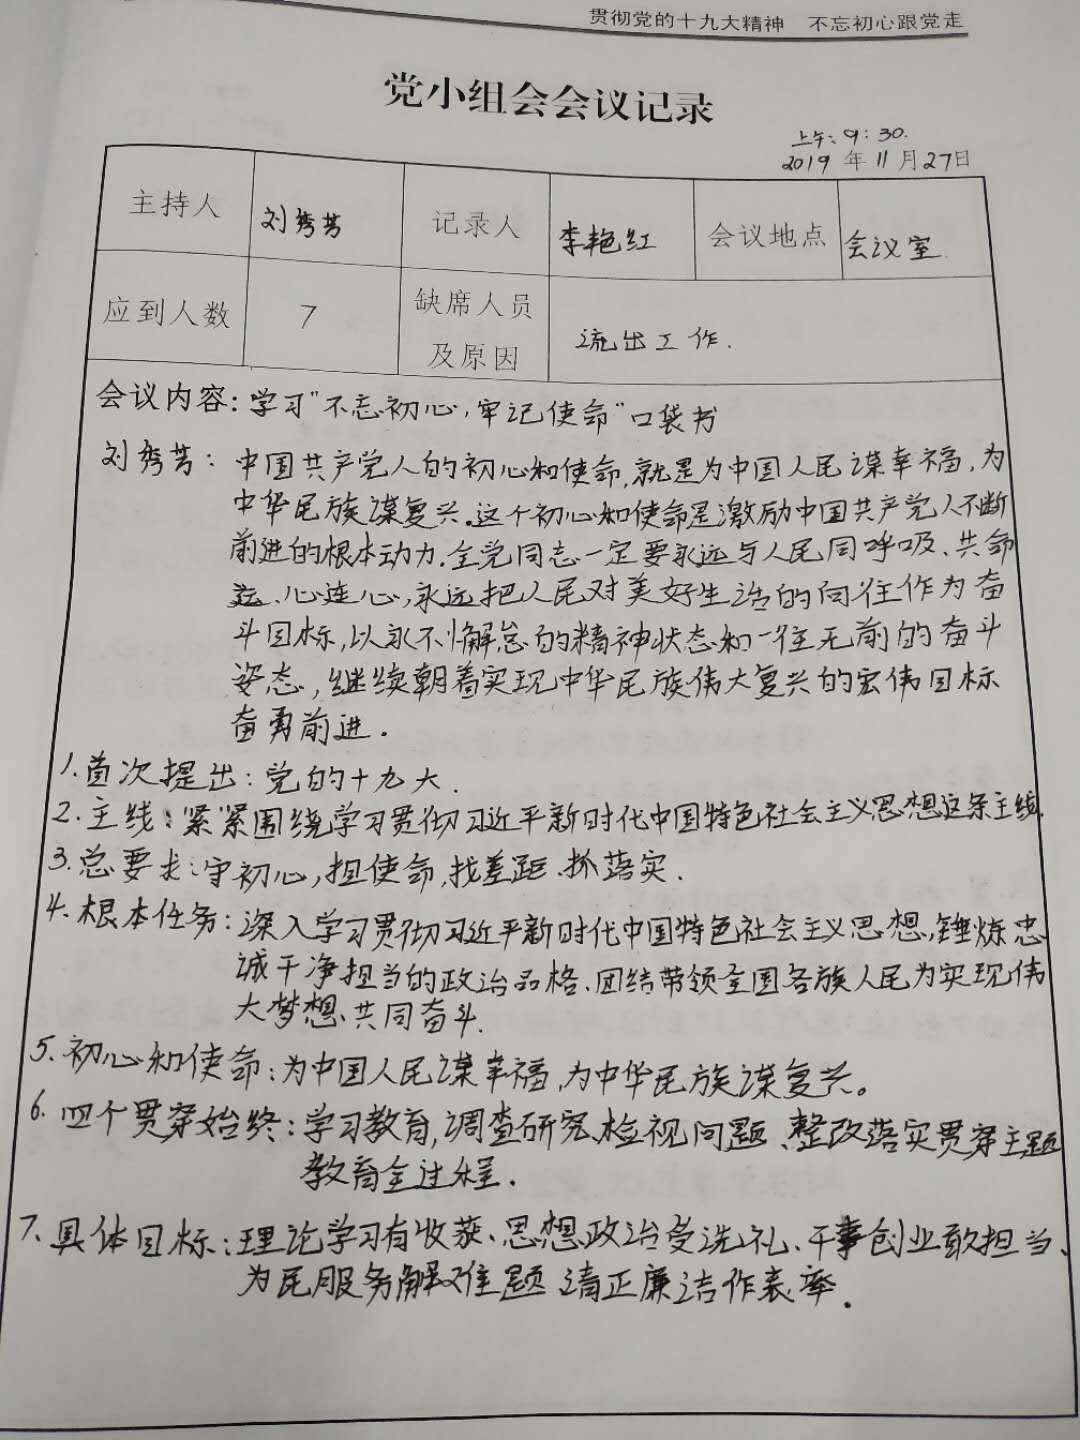 贯彻党的十九大精神　不忘初心跟党走
党小组会会议记录
上午：9：30.
2019年11月27日
主持人 刘秀芳 记录人 李艳红 会议地点 会议室.
应到人数 7 缺席人员及原因 流出工作.
会议内容：学习"不忘初心，牢记使命"口袋书
刘秀芳：中国共产党人的初心和使命，就是为中国人民谋幸福，为
中华民族谋复兴。这个初心和使命是激励中国共产党人不断
前进的根本动力.全党同志一定要永远与人民同呼吸、共命
运、心连心，永远把人民对美好生活的向往作为奋
斗目标，以永不懈怠的精神状态和一往无前的奋斗
姿态，继续朝着实现中华民族伟大复兴的宏伟目标
奋勇前进.
1.首次提出：党的十九大.
2.主线：紧紧围绕学习贯彻习近平新时代中国特色社会主义思想这条主线.
3.总要求：守初心，担使命，找差距.抓落实.
4.根本任务：深入学习贯彻习近平新时代中国特色社会主义思想，锤炼忠
诚干净担当的政治品格、团结带领全国各族人民为实现伟
大梦想、共同奋斗.
5.初心和使命：为中国人民谋幸福，为中华民族谋复兴。
6.四个贯穿始终：学习教育，调查研究、检视问题、整改落实贯穿主题
教育全过程.
7.具体目标：理论学习有收获、思想政治受洗礼、干事创业敢担当、
为民服务解难题 清正廉洁作表率.